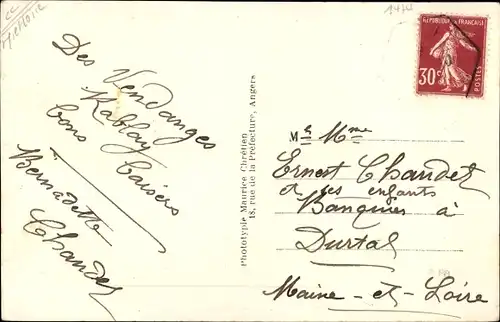 Des Vendanges
Rablay
bons baisers
Bernadette
Chaudet
Phototypie Maurice Chrétien
18, rue de la Préfecture, Angers
RÉPUBLIQUE FRANÇAISE
30c
POSTES
Mr Mme
Ernest Chaudet
et ses enfants
Banquier à
Durtal
Maine-et-Loire